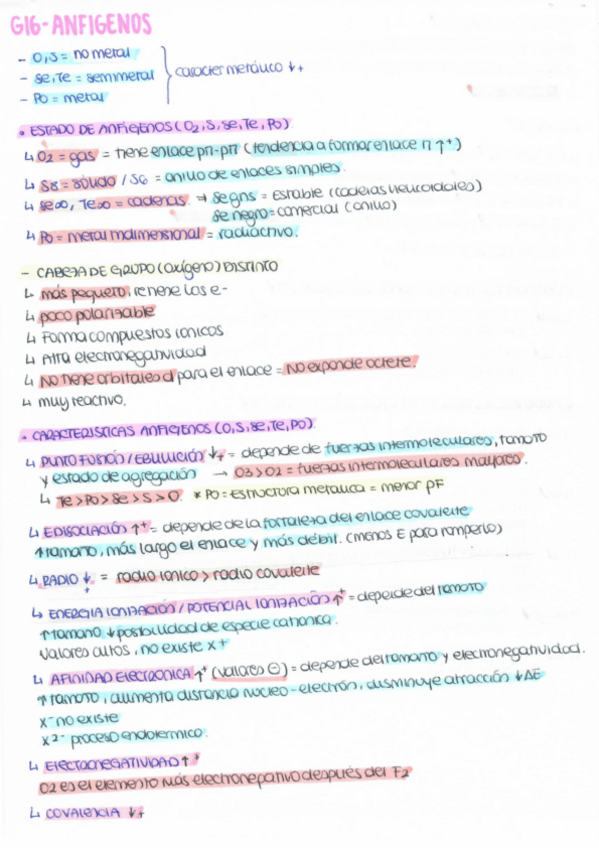 G16-ANFIGENOS
- O,S = no metal
- Se,Te = semimetal
- Po = metal
caracter metálico ↓+
• ESTADO DE ANFIGENOS (O2, S, Se, Te, Po)
↳ O2 = gas = tiene enlace pπ-pπ (tendencia a formar enlace π ↑+)
↳ S8 = sólido / S6 = anillo de enlaces simples.
↳ Se∞, Te∞ = cadenas. → Se gris = Estable (cadenas helicoidales)
Se negro = comercial (anillo)
↳ Po = metal mdimensional = radiactivo.
- CABEZA DE GRUPO (oxígeno) DISTINTO
↳ más pequeño, retiene los e-
↳ poco polarizable
↳ Forma compuestos ionicos
↳ Alta electronegatividad
↳ No tiene orbitales d para el enlace = No expande octete.
↳ muy reactivo.
• CARACTERISTICAS ANFIGENOS (O,S,Se,Te,Po)
↳ PUNTO FUSIÓN / EBULLICIÓN ↓+ = depende de fuerzas intermoleculares, tamaño
y estado de agregación → O3 > O2 = fuerzas intermoleculares mayores.
↳ Te > Po > Se > S > O. * Po = Estructura metalica = menor pF
↳ EDISOCIACIÓN ↑+ = depende de la fortaleza del enlace covalente
↑ tamaño, más largo el enlace y más débil. (menos E para romperlo)
↳ RADIO ↓+ = radio ionico > radio covalente
↳ ENERGIA IONIZACIÓN / POTENCIAL IONIZACIÓN ↑+ = depende del tamaño
↑ Tamaño ↓ posibilidad de especie cationica.
Valores altos, no existe x+
↳ AFINIDAD ELECTRONICA ↑+ (valores ⊖) = depende del tamaño y electronegatividad.
↑ tamaño, aumenta distancia nucleo-electrón, disminuye atracción ↓ΔE
x- no existe
x2- proceso endotermico.
↳ ELECTRONEGATIVIDAD ↑+
O2 es el elemento más electronegativo después del F2
↳ COVALENCIA ↓+